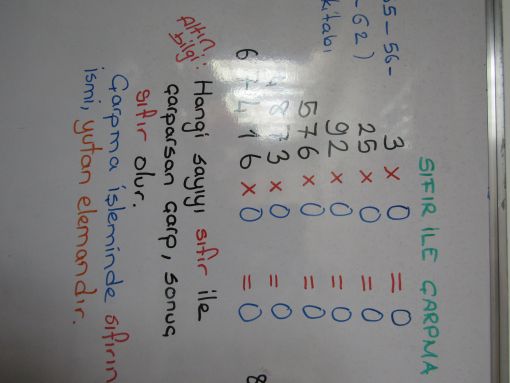 SIFIR İLE ÇARPMA
3 x 0 = 0
25 x 0 = 0
92 x 0 = 0
576 x 0 = 0
873 x 0 = 0
416 x 0 = 0
Altın bilgi: Hangi sayıyı sıfır ile
çarparsan çarp, sonuç
sıfır olur.
Çarpma işleminde sıfırın
ismi, yutan elemandır.
55-56-
62)
kitabı
8